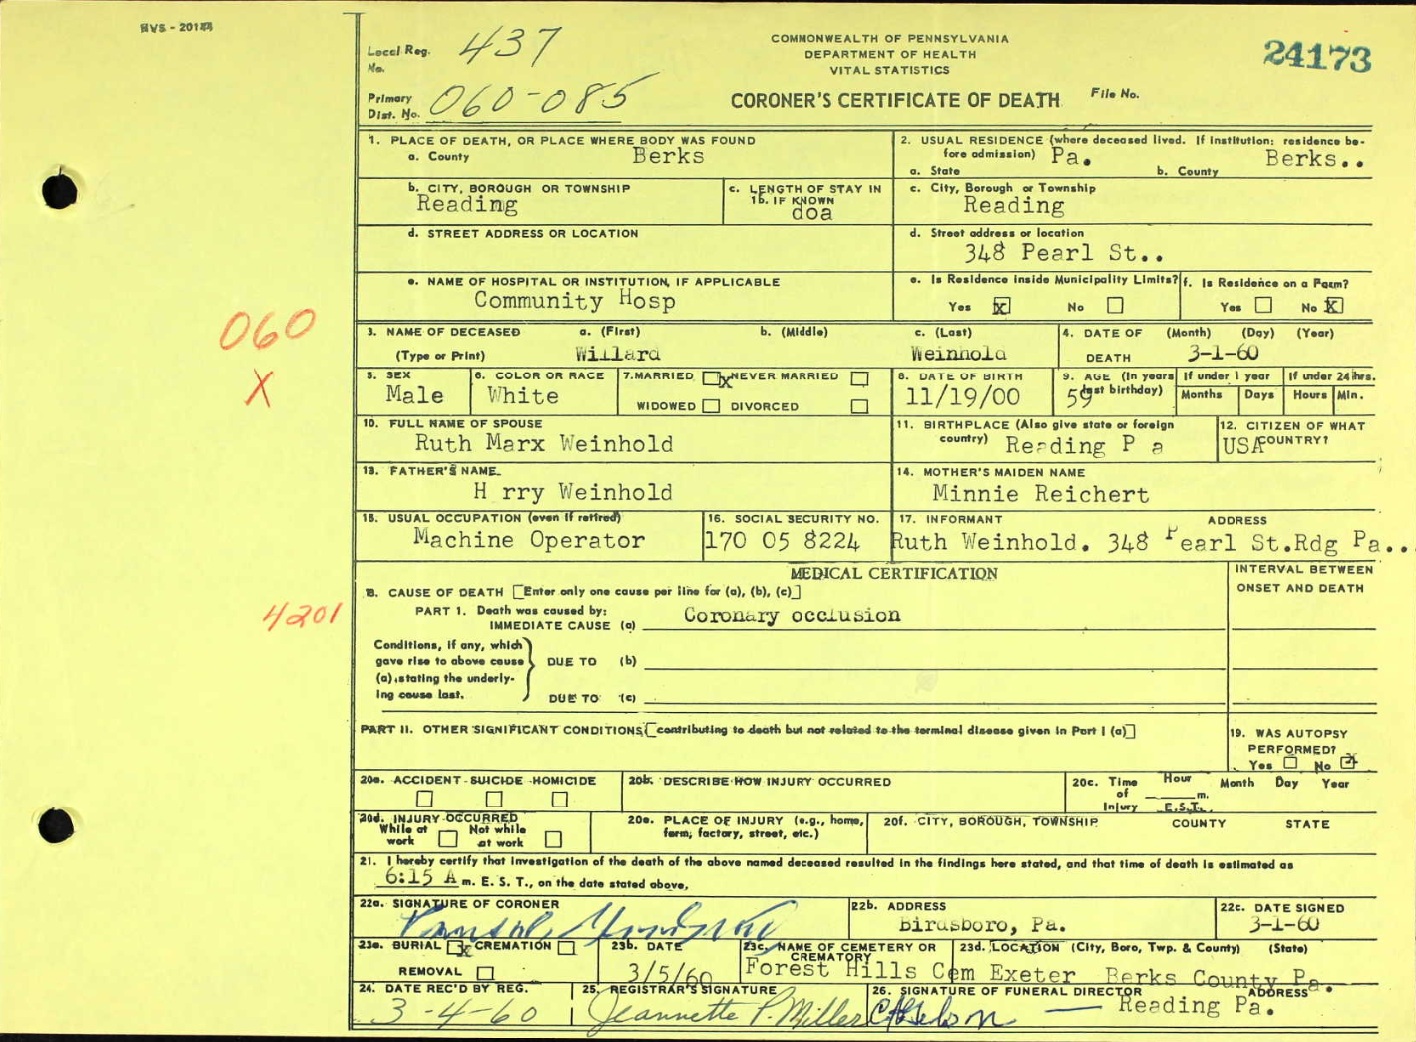 HVS - 20143
Local Reg. No. 437
COMMONWEALTH OF PENNSYLVANIA
DEPARTMENT OF HEALTH
VITAL STATISTICS
24173
Primary Dist. No. 060-085
CORONER'S CERTIFICATE OF DEATH File No.
1. PLACE OF DEATH, OR PLACE WHERE BODY WAS FOUND
a. County Berks
2. USUAL RESIDENCE (where deceased lived. If institution: residence before admission)
a. State Pa. b. County Berks..
b. CITY, BOROUGH OR TOWNSHIP
Reading
c. LENGTH OF STAY IN 1b. IF KNOWN
doa
c. City, Borough or Township
Reading
d. STREET ADDRESS OR LOCATION
d. Street address or location
348 Pearl St..
e. NAME OF HOSPITAL OR INSTITUTION, IF APPLICABLE
Community Hosp
e. Is Residence inside Municipality Limits?
Yes X No
f. Is Residence on a Farm?
Yes No X
060
X
3. NAME OF DECEASED a. (First) b. (Middle) c. (Last)
(Type or Print) Willard Weinhold
4. DATE OF DEATH (Month) (Day) (Year)
3-1-60
5. SEX
Male
6. COLOR OR RACE
White
7. MARRIED X NEVER MARRIED
WIDOWED DIVORCED
8. DATE OF BIRTH
11/19/00
9. AGE (In years last birthday)
59
If under 1 year
Months Days
If under 24 hrs.
Hours Min.
10. FULL NAME OF SPOUSE
Ruth Marx Weinhold
11. BIRTHPLACE (Also give state or foreign country)
Reading P a
12. CITIZEN OF WHAT COUNTRY?
USA
13. FATHER'S NAME
H rry Weinhold
14. MOTHER'S MAIDEN NAME
Minnie Reichert
15. USUAL OCCUPATION (even if retired)
Machine Operator
16. SOCIAL SECURITY NO.
170 05 8224
17. INFORMANT ADDRESS
Ruth Weinhold. 348 Pearl St.Rdg Pa...
MEDICAL CERTIFICATION
INTERVAL BETWEEN ONSET AND DEATH
8. CAUSE OF DEATH [Enter only one cause per line for (a), (b), (c)]
PART 1. Death was caused by:
IMMEDIATE CAUSE (a) Coronary occlusion
4201
Conditions, if any, which gave rise to above cause (a), stating the underlying cause last.
DUE TO (b)
DUE TO (c)
PART II. OTHER SIGNIFICANT CONDITIONS [contributing to death but not related to the terminal disease given in Part I (a)]
19. WAS AUTOPSY PERFORMED?
Yes No X
20a. ACCIDENT - SUICIDE - HOMICIDE
20b. DESCRIBE HOW INJURY OCCURRED
20c. Time of Injury Hour m. E.S.T. Month Day Year
20d. INJURY OCCURRED
While at work Not while at work
20e. PLACE OF INJURY (e.g., home, farm, factory, street, etc.)
20f. CITY, BOROUGH, TOWNSHIP COUNTY STATE
21. I hereby certify that investigation of the death of the above named deceased resulted in the findings here stated, and that time of death is estimated as
6:15 A m. E. S. T., on the date stated above,
22a. SIGNATURE OF CORONER
22b. ADDRESS
Birdsboro, Pa.
22c. DATE SIGNED
3-1-60
23a. BURIAL X CREMATION
REMOVAL
23b. DATE
3/5/60
23c. NAME OF CEMETERY OR CREMATORY
Forest Hills Cem
23d. LOCATION (City, Boro, Twp. & County) (State)
Exeter Berks County Pa.
24. DATE REC'D BY REG.
3-4-60
25. REGISTRAR'S SIGNATURE
Jeannette P. Miller
26. SIGNATURE OF FUNERAL DIRECTOR ADDRESS
Reading Pa.